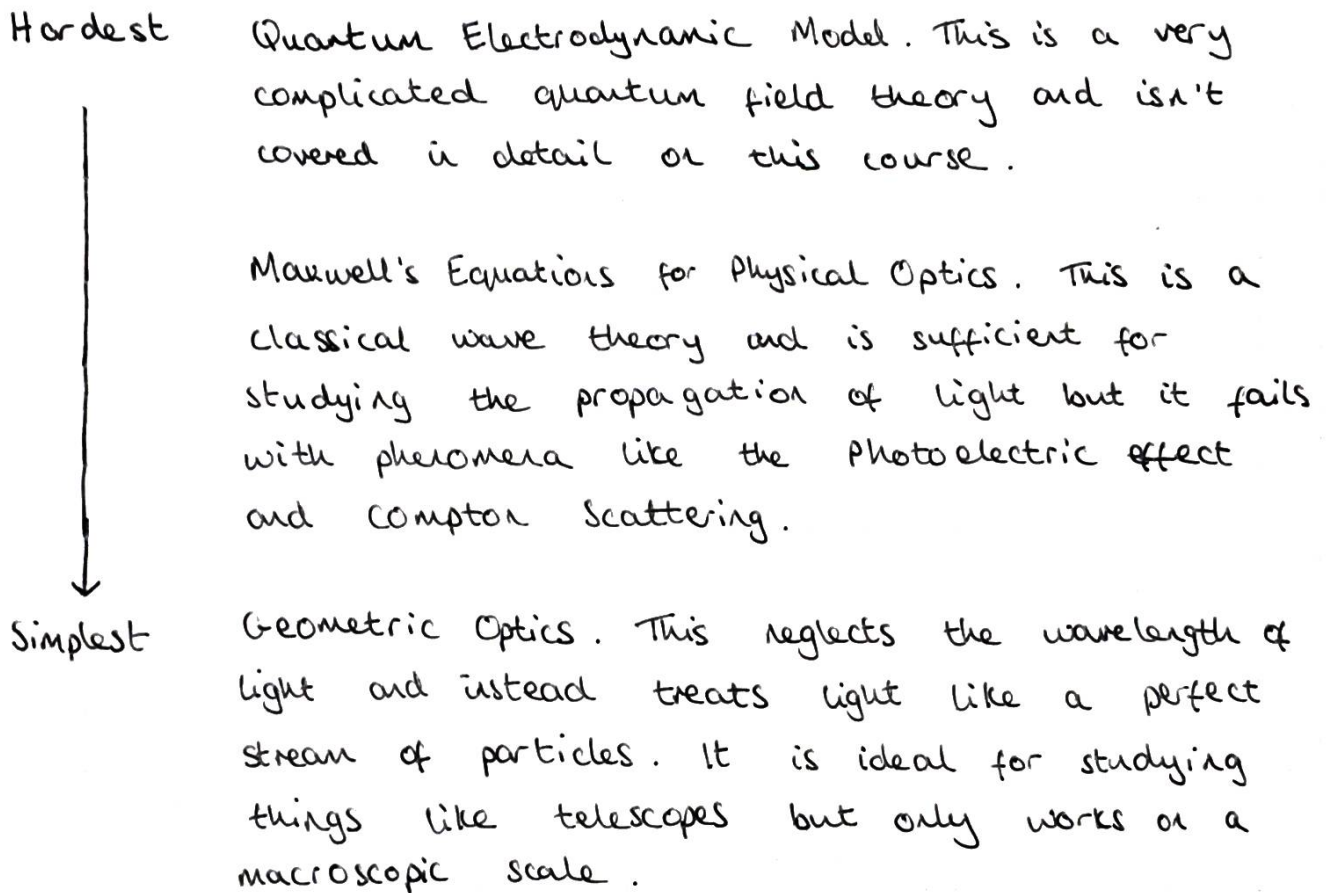 Hardest Quantum Electrodynamic Model. This is a very
complicated quantum field theory and isn't
covered in detail on this course.
Maxwell's Equations for Physical Optics. This is a
classical wave theory and is sufficient for
studying the propagation of light but it fails
with phenomena like the Photoelectric effect
and Compton Scattering.
Simplest Geometric Optics. This neglects the wavelength of
light and instead treats light like a perfect
stream of particles. It is ideal for studying
things like telescopes but only works on a
macroscopic scale.